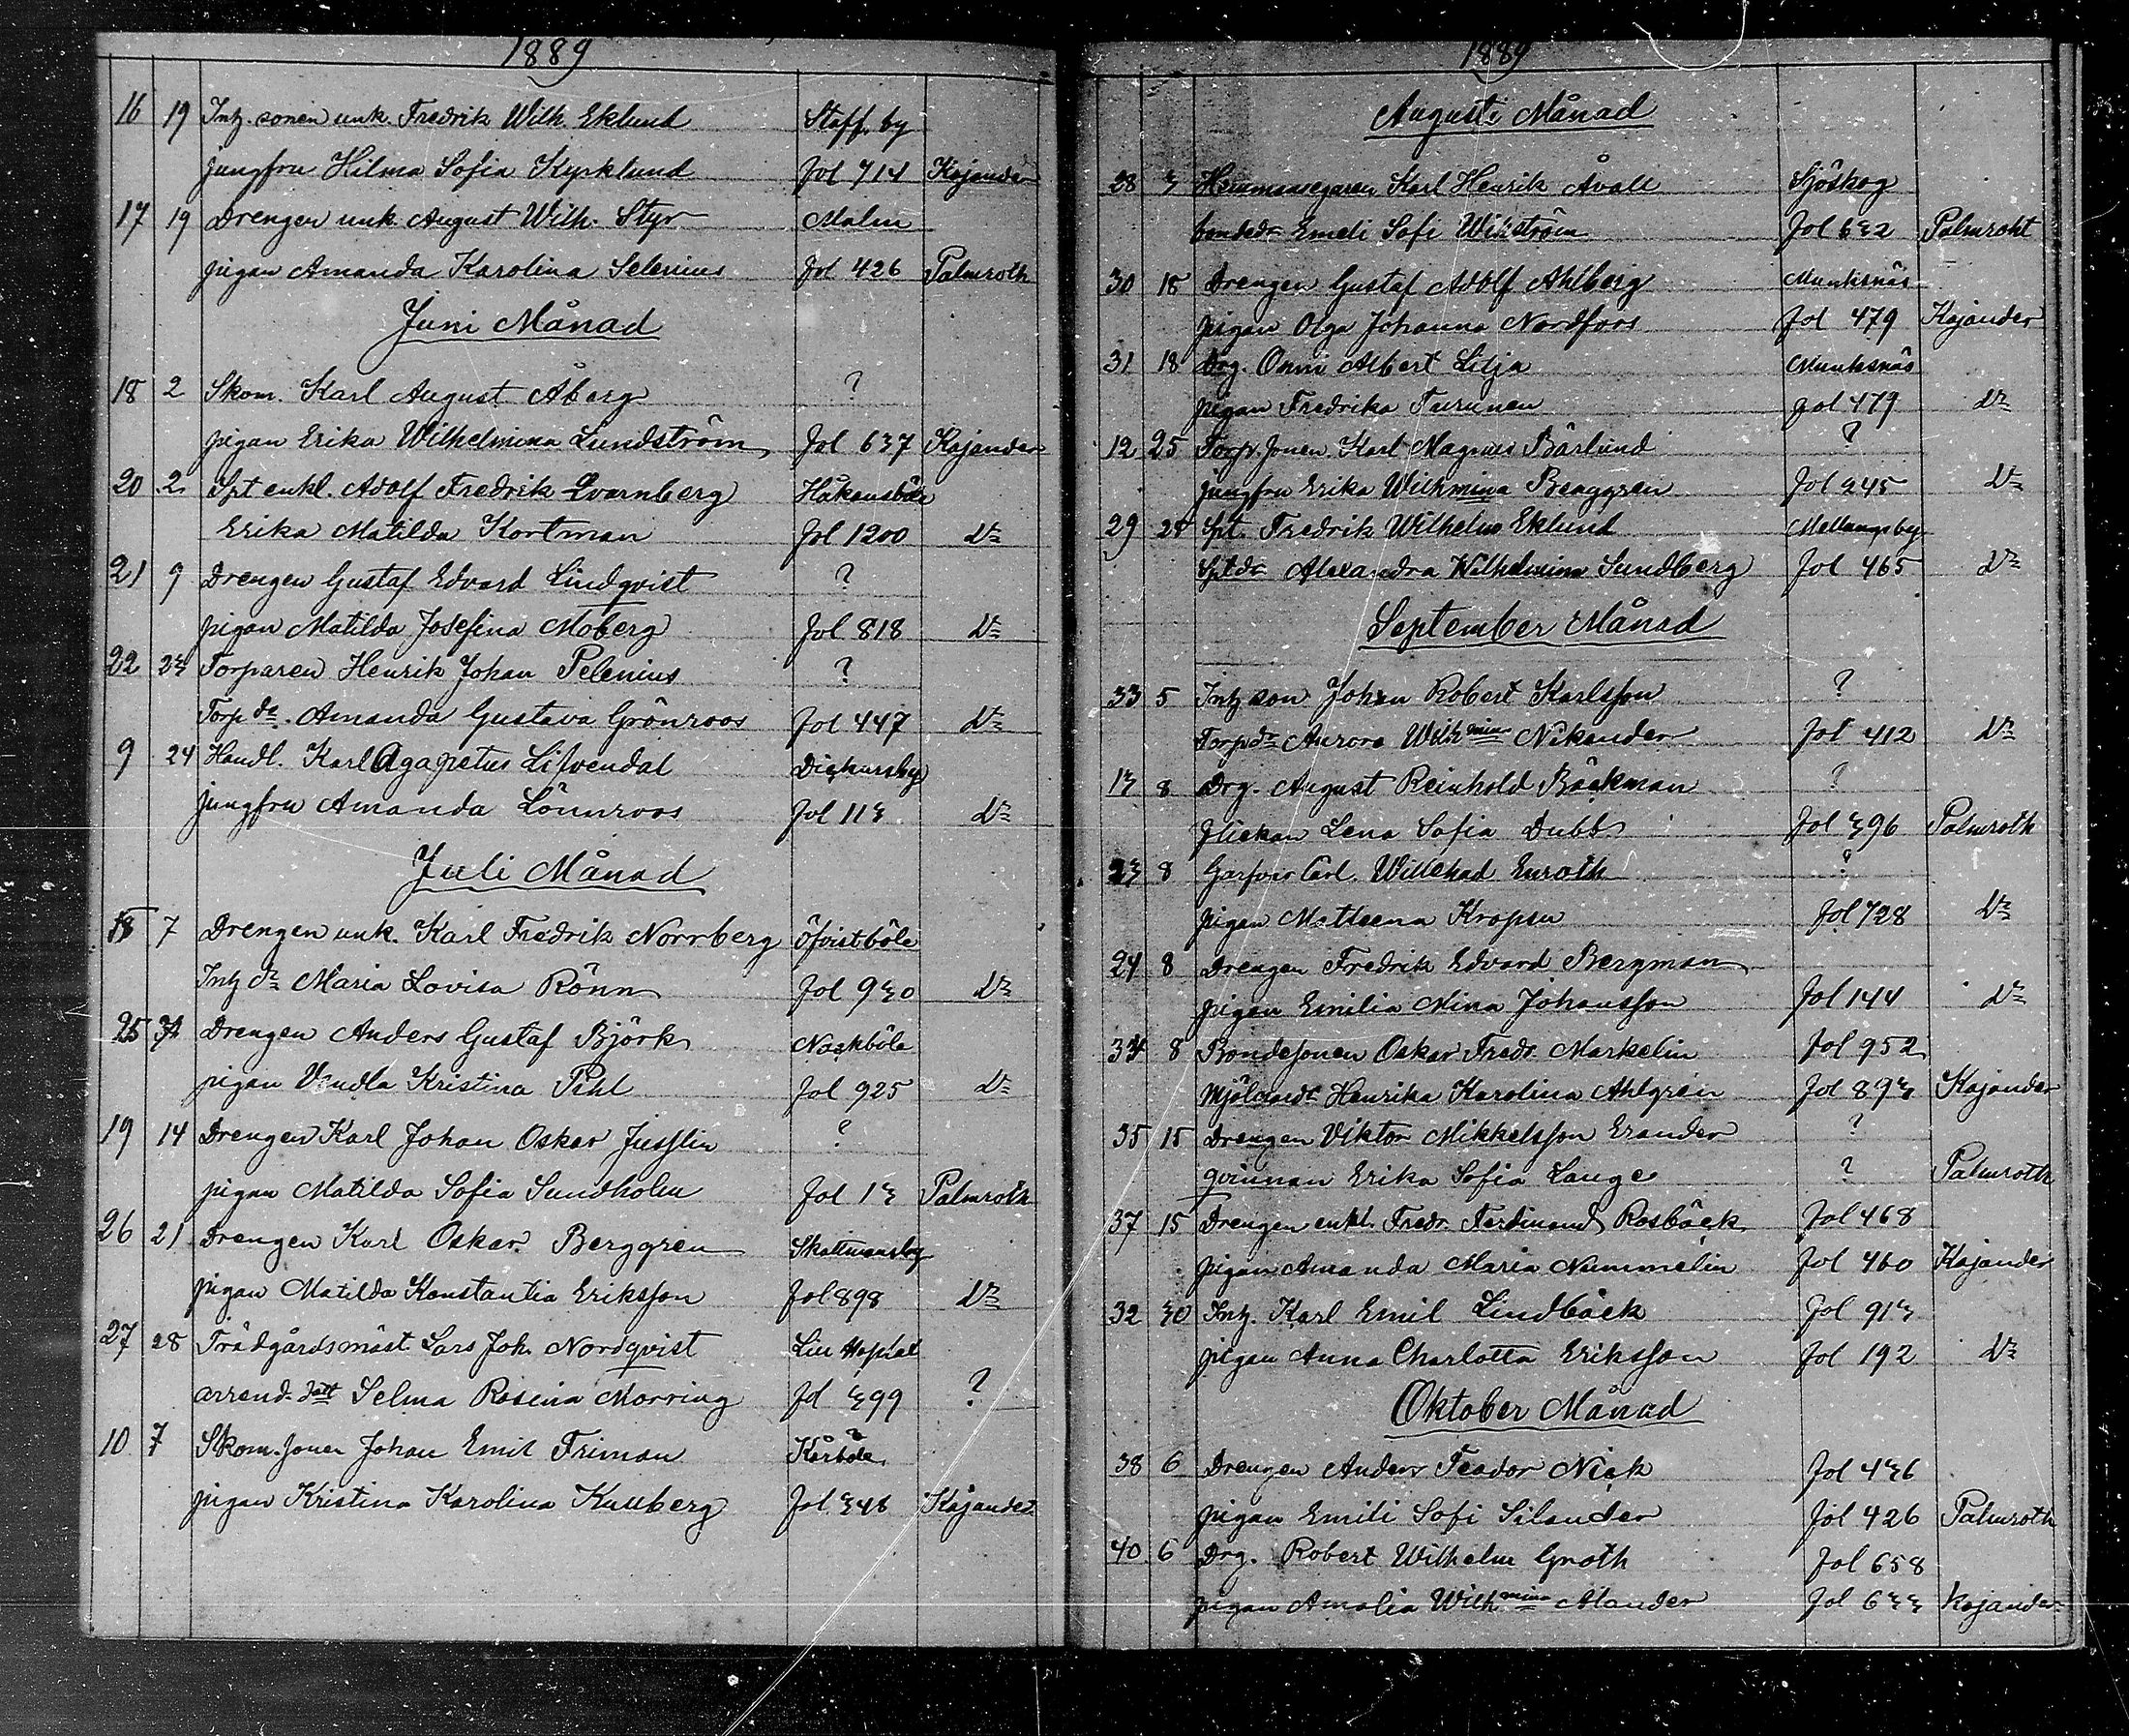 1889
16 19 Inh. sonen unk. Fredrik Wilh. Eklund Staff. by
jungfru Hilma Sofia Kyrklund fol 714 Kajander
17 19 Drengen unk. August Wilh. Styr Malm
pigan Amanda Karolina Selenius fol 426 Palmroth
Juni Månad
18 2 Skom. Karl August Åberg ?
pigan Erika Wilhelmina Lundström fol 637 Kajander
20 2 Spt enkl. Adolf Fredrik Qvarnberg Håkansböle
Erika Matilda Kortman fol 1200 Do
21 9 Drengen Gustaf Edvard Lindqvist ?
pigan Matilda Josefina Moberg fol 818 Do
22 23 Torparen Henrik Johan Pelenius ?
Torp dr. Amanda Gustava Grönroos fol 447 Do
9 24 Handl. Karl Agapetus Lifvendal Dickursby
jungfru Amanda Lönnroos fol 113 Do
Juli Månad
7 Drengen unk. Karl Fredrik Norrberg Öfvistböle
Inh dr Maria Lovisa Rönn fol 930 Do
25 Drengen Anders Gustaf Björk Nackböle
pigan Vendla Kristina Pihl fol 925 Do
19 14 Drengen Karl Johan Oskar Jusslin ?
pigan Matilda Sofia Sundholm fol 13 Palmroth
26 21 Drengen Karl Oskar Berggren Skattmansby
pigan Matilda Konstantia Eriksson fol 898 Do
27 28 Trädgårdsmäst Lars Joh. Nordqvist Hospital
arrend. dott Selma Rosina Morring fol 399 ?
10 7 Skom. sonen Johan Emil Friman Kårböle
pigan Kristina Karolina Kullberg fol 348 Kajander
1889
Augusti Månad
28 3 Hemmansegaren Karl Henrik Åvall Sjöskog
bondedr Emeli Sofi Wikström fol 632 Palmroht
30 18 Drengen Gustaf Adolf Ahlberg Munksnäs
pigan Olga Johanna Nordfors fol 479 Kajander
31 18 Drg. Onni Albert Lilja Munksnäs
pigan Fredrika Turunen fol 479 Do
12 25 Torp. sonen Karl Magnus Bärlund ?
jungfru Erika Wilhmina Berggren fol 245 Do
29 25 Spt. Fredrik Wilhelm Eklund Mellungsby
Sptdr Alexandra Wilhelmina Sundberg fol 465 Do
September Månad
33 5 Inh son Johan Robert Karlsson ?
Torpdr Aurora Wilhmina Nikander fol 412 Do
13 8 Drg. August Reinhold Bäckman ?
flickan Lena Sofia Dubb fol 396 Palmroth
23 8 Garfvar Carl Willehad Enroth ?
pigan Matleena Kropsu fol 728 Do
24 8 Drengen Fredrik Edvard Bergman
pigan Emilia Mina Johansson fol 144 Do
34 8 Bondesonen Oskar Fredr. Markelin fol 952
Mjölnardr Henrika Karolina Ahlgren fol 893 Kajander
35 15 Drengen Viktor Mikkelsson Erander ?
qvinnan Erika Sofia Lange ? Palmroth
37 15 Drengen enkl. Fredr. Ferdinand Rosbäck fol 468
pigan Amanda Maria Nummelin fol 460 Kajander
32 30 Inh. Karl Emil Lindbäck fol 913
pigan Anna Charlotta Eriksson fol 192 Do
Oktober Månad
38 6 Drengen Anders Teodor Nick fol 436
pigan Emili Sofi Silander fol 426 Palmroth
40 6 Drg. Robert Wilhelm Groth fol 658
pigan Amalia Wilhmina Alander fol 633 Kajander